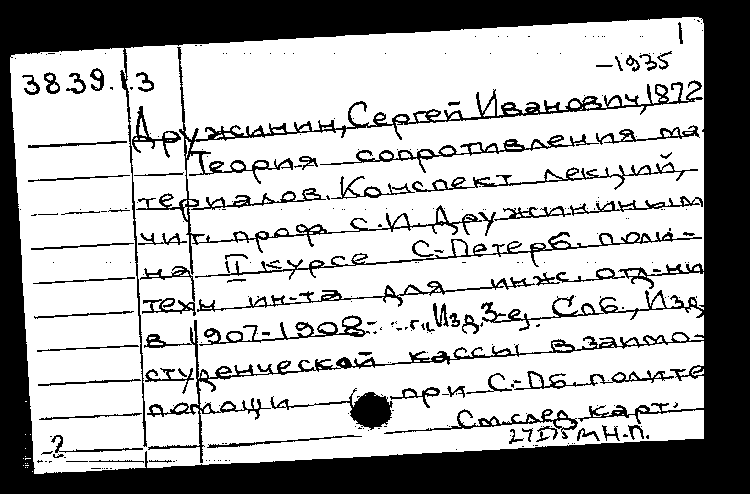 1
38.39.1.3
-1935
Дружинин, Сергей Иванович, 1872
Теория сопротивления ма-
териалов. Конспект лекций,
чит. проф. С.И. Дружининым
на II курсе С.-Петерб. поли-
техн. ин-та для инж. отд-ни
в 1907-1908 г., Изд. 3-е, Спб., Изд.
студенческой кассы взаимо-
помощи при С.-Пб. полите
См. след. карт.
2
Н.П.